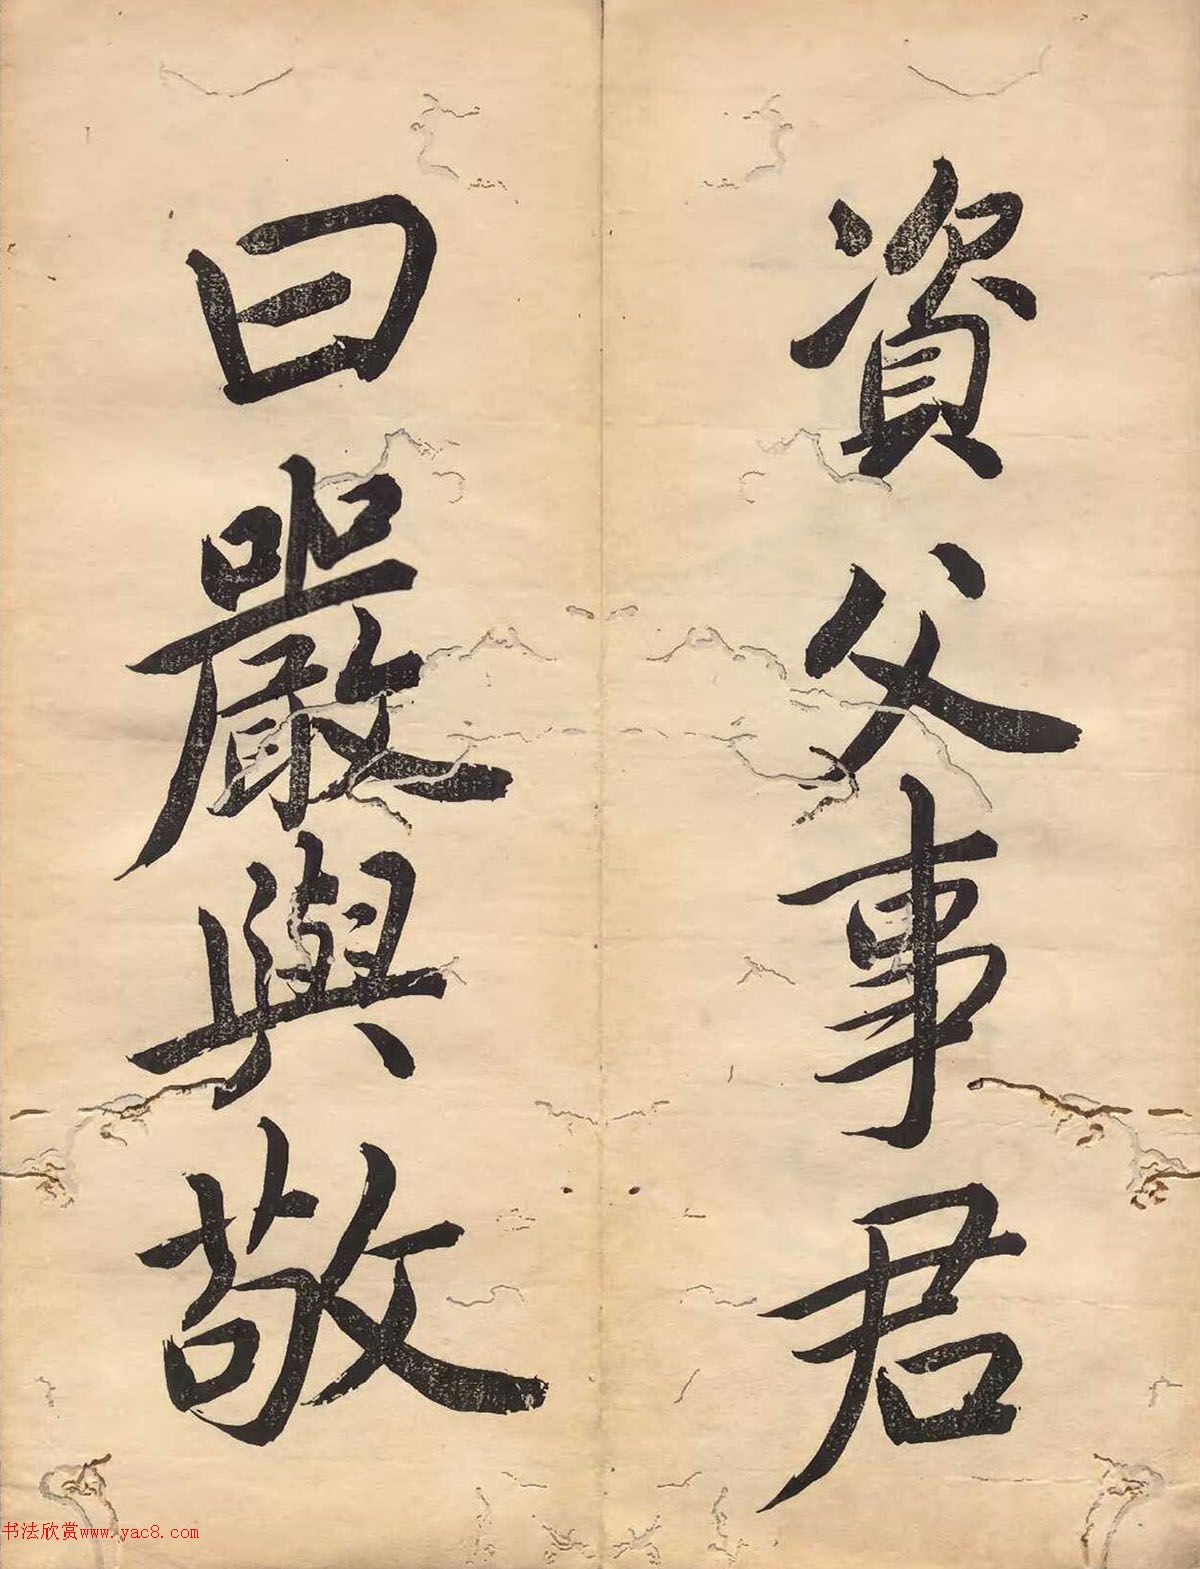 資父事君
曰嚴與敬
书法欣赏www.yac8.com